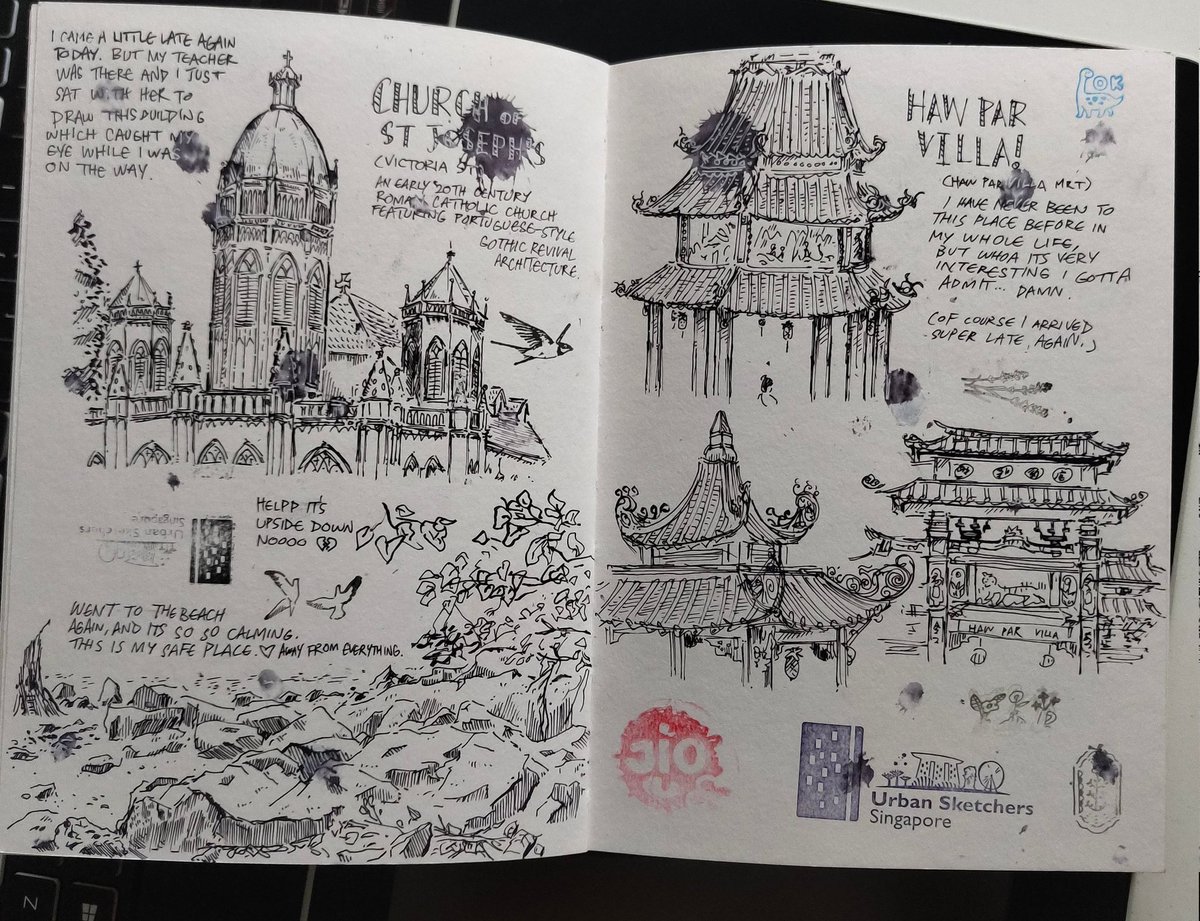 I CAME A LITTLE LATE AGAIN
TODAY. BUT MY TEACHER
WAS THERE AND I JUST
SAT WITH HER TO
DRAW THIS BUILDING
WHICH CAUGHT MY
EYE WHILE I WAS
ON THE WAY.
CHURCH OF
ST JOSEPH'S
(VICTORIA ST)
AN EARLY 20TH CENTURY
ROMAN CATHOLIC CHURCH
FEATURING PORTUGUESE-STYLE
GOTHIC REVIVAL
ARCHITECTURE.
HELPP IT'S
UPSIDE DOWN
NOOOO
Urban Sketchers
Singapore
WENT TO THE BEACH
AGAIN, AND ITS SO SO CALMING.
THIS IS MY SAFE PLACE. ♡ AWAY FROM EVERYTHING.
HAW PAR
VILLA!
(HAW PAR VILLA MRT)
I HAVE NEVER BEEN TO
THIS PLACE BEFORE IN
MY WHOLE LIFE,
BUT WHOA ITS VERY
INTERESTING I GOTTA
ADMIT... DAMN.
(OF COURSE I ARRIVED
SUPER LATE, AGAIN.)
HAW PAR VILLA
Urban Sketchers
Singapore
N